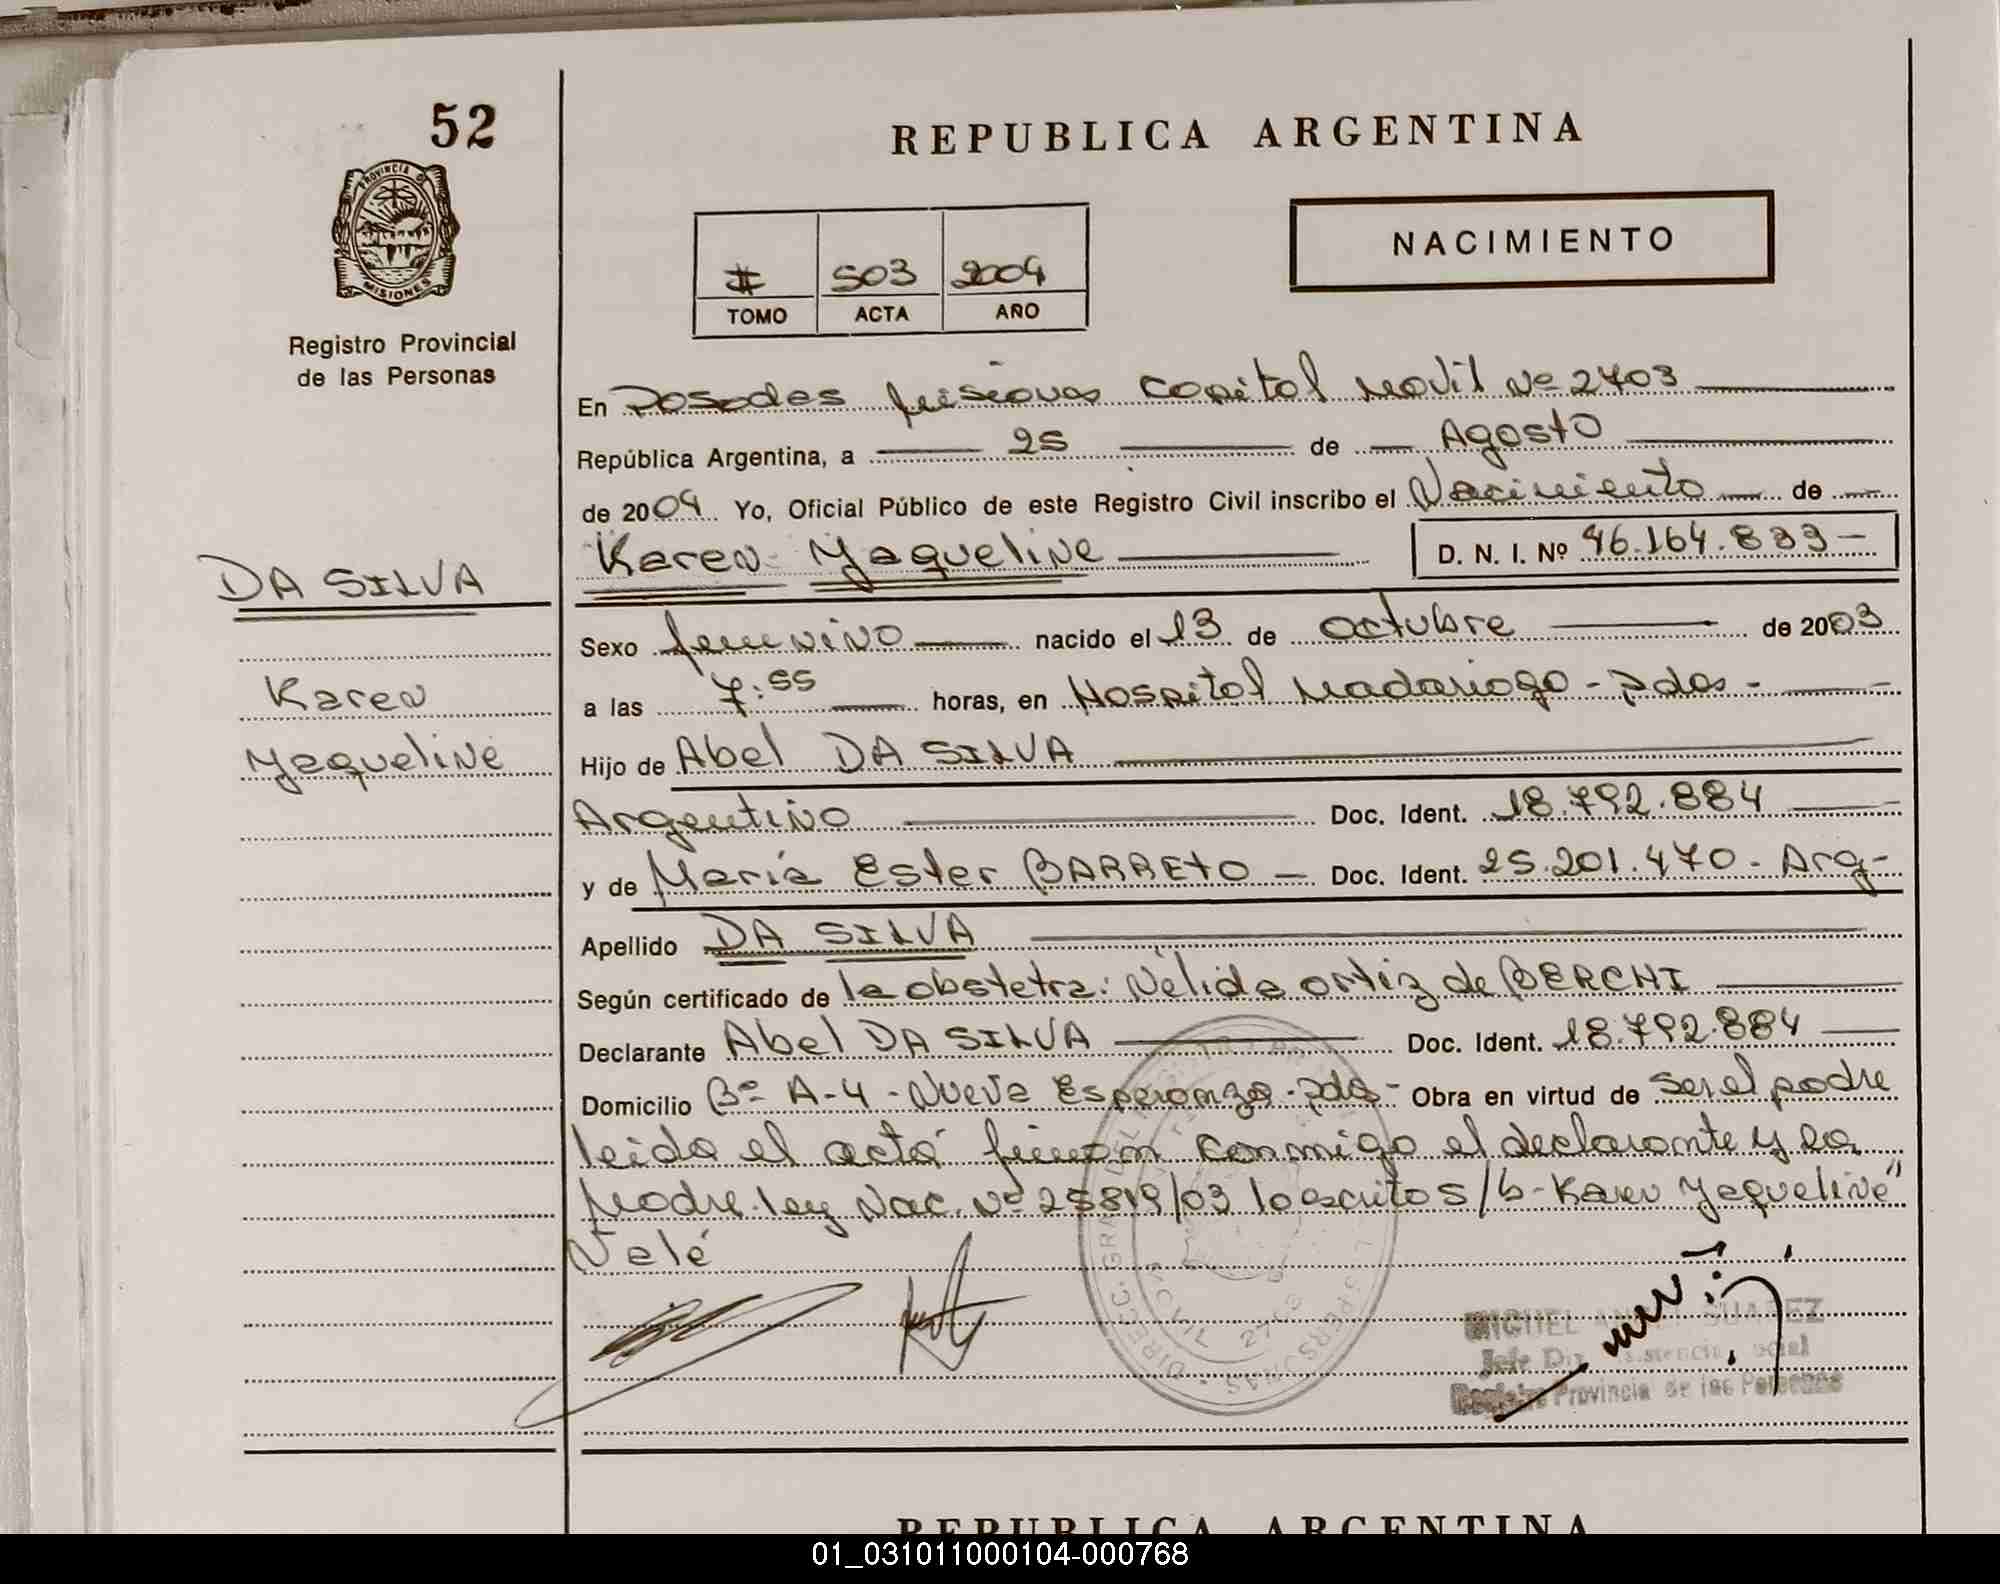 52
PROVINCIA DE
MISIONES
Registro Provincial
de las Personas
DA SILVA
Karen
Yaqueline
REPUBLICA ARGENTINA
NACIMIENTO
503 2004
TOMO ACTA AÑO
En Posadas Misiones Capital Movil Nº 2703
República Argentina, a 25 de Agosto
de 2004 Yo, Oficial Público de este Registro Civil inscribo el Nacimiento de
Karen Yaqueline D. N. I. Nº 46.164.839-
Sexo femenino nacido el 13 de octubre de 2003
a las 7:55 horas, en Hospital Madariaga - Pdas -
Hijo de Abel DA SILVA
Argentino Doc. Ident. 18.792.884
y de María Ester BARRETO - Doc. Ident. 25.201.470 - Arg-
Apellido DA SILVA
Según certificado de la obstetra: Nélida Ortiz de BERCHI
Declarante Abel DA SILVA Doc. Ident. 18.792.884
Domicilio Bº A-4 - Nueva Esperanza - Pdas - Obra en virtud de ser el padre
leida el acta firman conmigo el declarante y la
Madre. ley Nac. Nº 25819/03 lo escrito s/b - Karen Yaqueline"
Vale
MIGUEL SUAREZ
Jefe
Registro Provincial de las Personas
REPUBLICA ARGENTINA
01_031011000104-000768